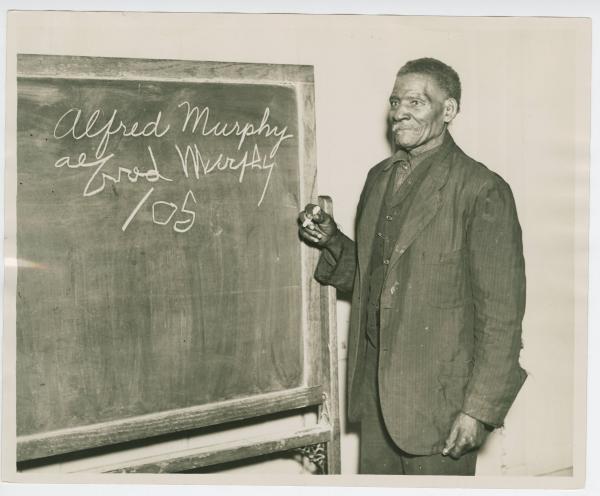 Alfred Murphy
alfrod Murphy
105